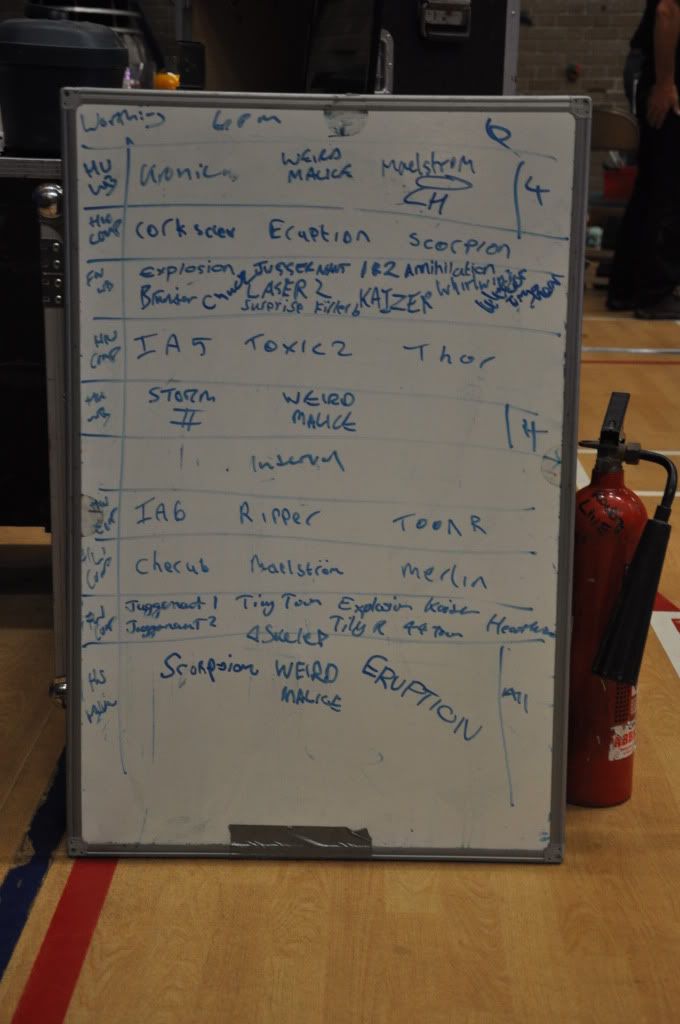 Worthing 6PM 6
HW WB Kronic WEIRD MALICE Maelstrom CH 4
HW Comp Corkscrew Eruption Scorpion
FW WB Explosion JUGGERNAUT 1&2 Annihilation
LASER 2 KAIZER Whirlwind
Surprise Killerb
IA5 Toxic2 Thor
HW WB STORM II WEIRD MALICE 4
Interval
IA6 Ripper TOON R
Cherub Maelström Merlin
Juggernaut 1 Tiny Toon Explosion Kaiser
Juggernaut 2 4 Skele P Tilly R 44 Toon
Scorpion WEIRD MALICE ERUPTION All